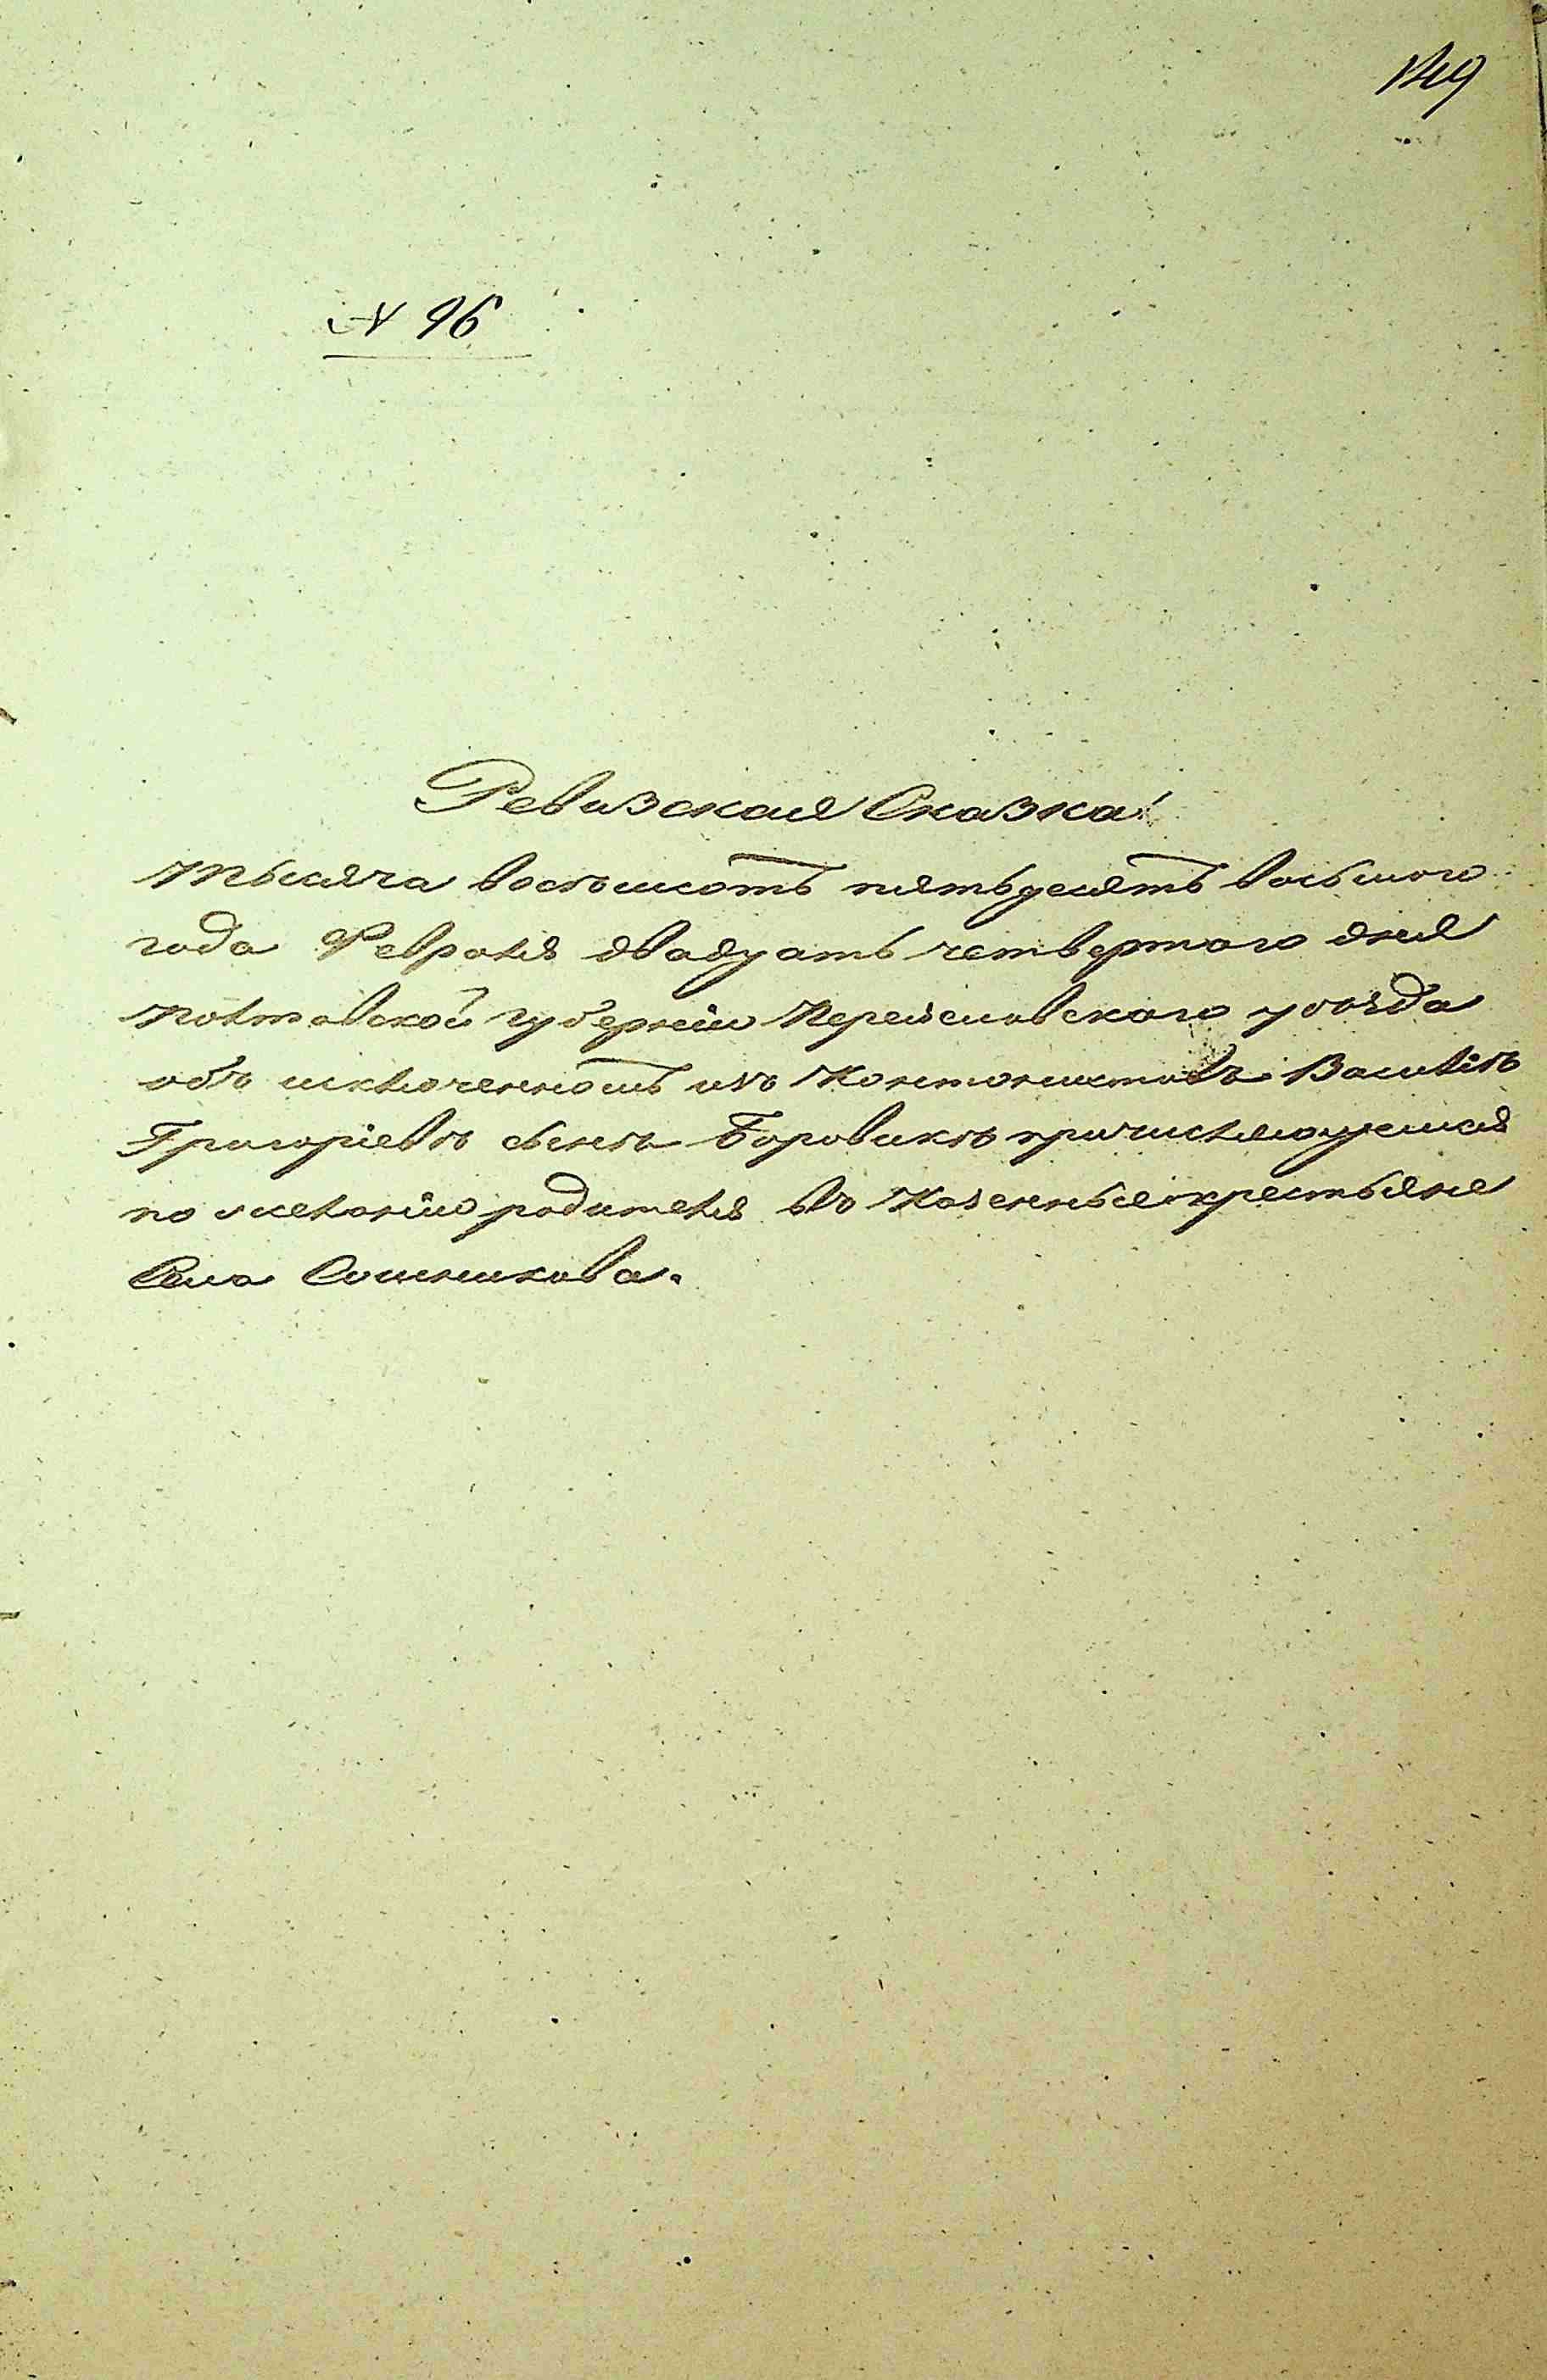 149
№ 96
Ревизская Сказка
тысяча восемьсотъ пятьдесятъ восьмого
года Февраля двадцать четвертого дня
Полтавской губерніи Переяславского уѣзда
объ исключенномъ изъ Кантонистовъ Василіѣ
Григоріевѣ сынѣ Боровикѣ причисляющемся
по желанію родителя въ Казенные крестьяне
Села Сошникова.